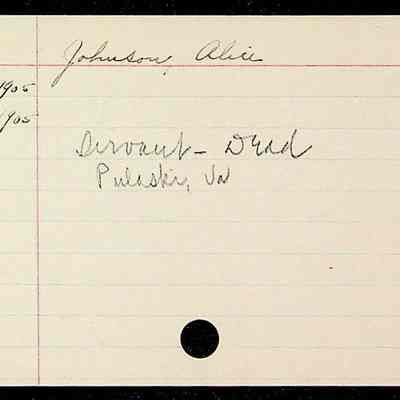 Johnson, Alice
1905
905
Servant - Dead
Pulaski, Va